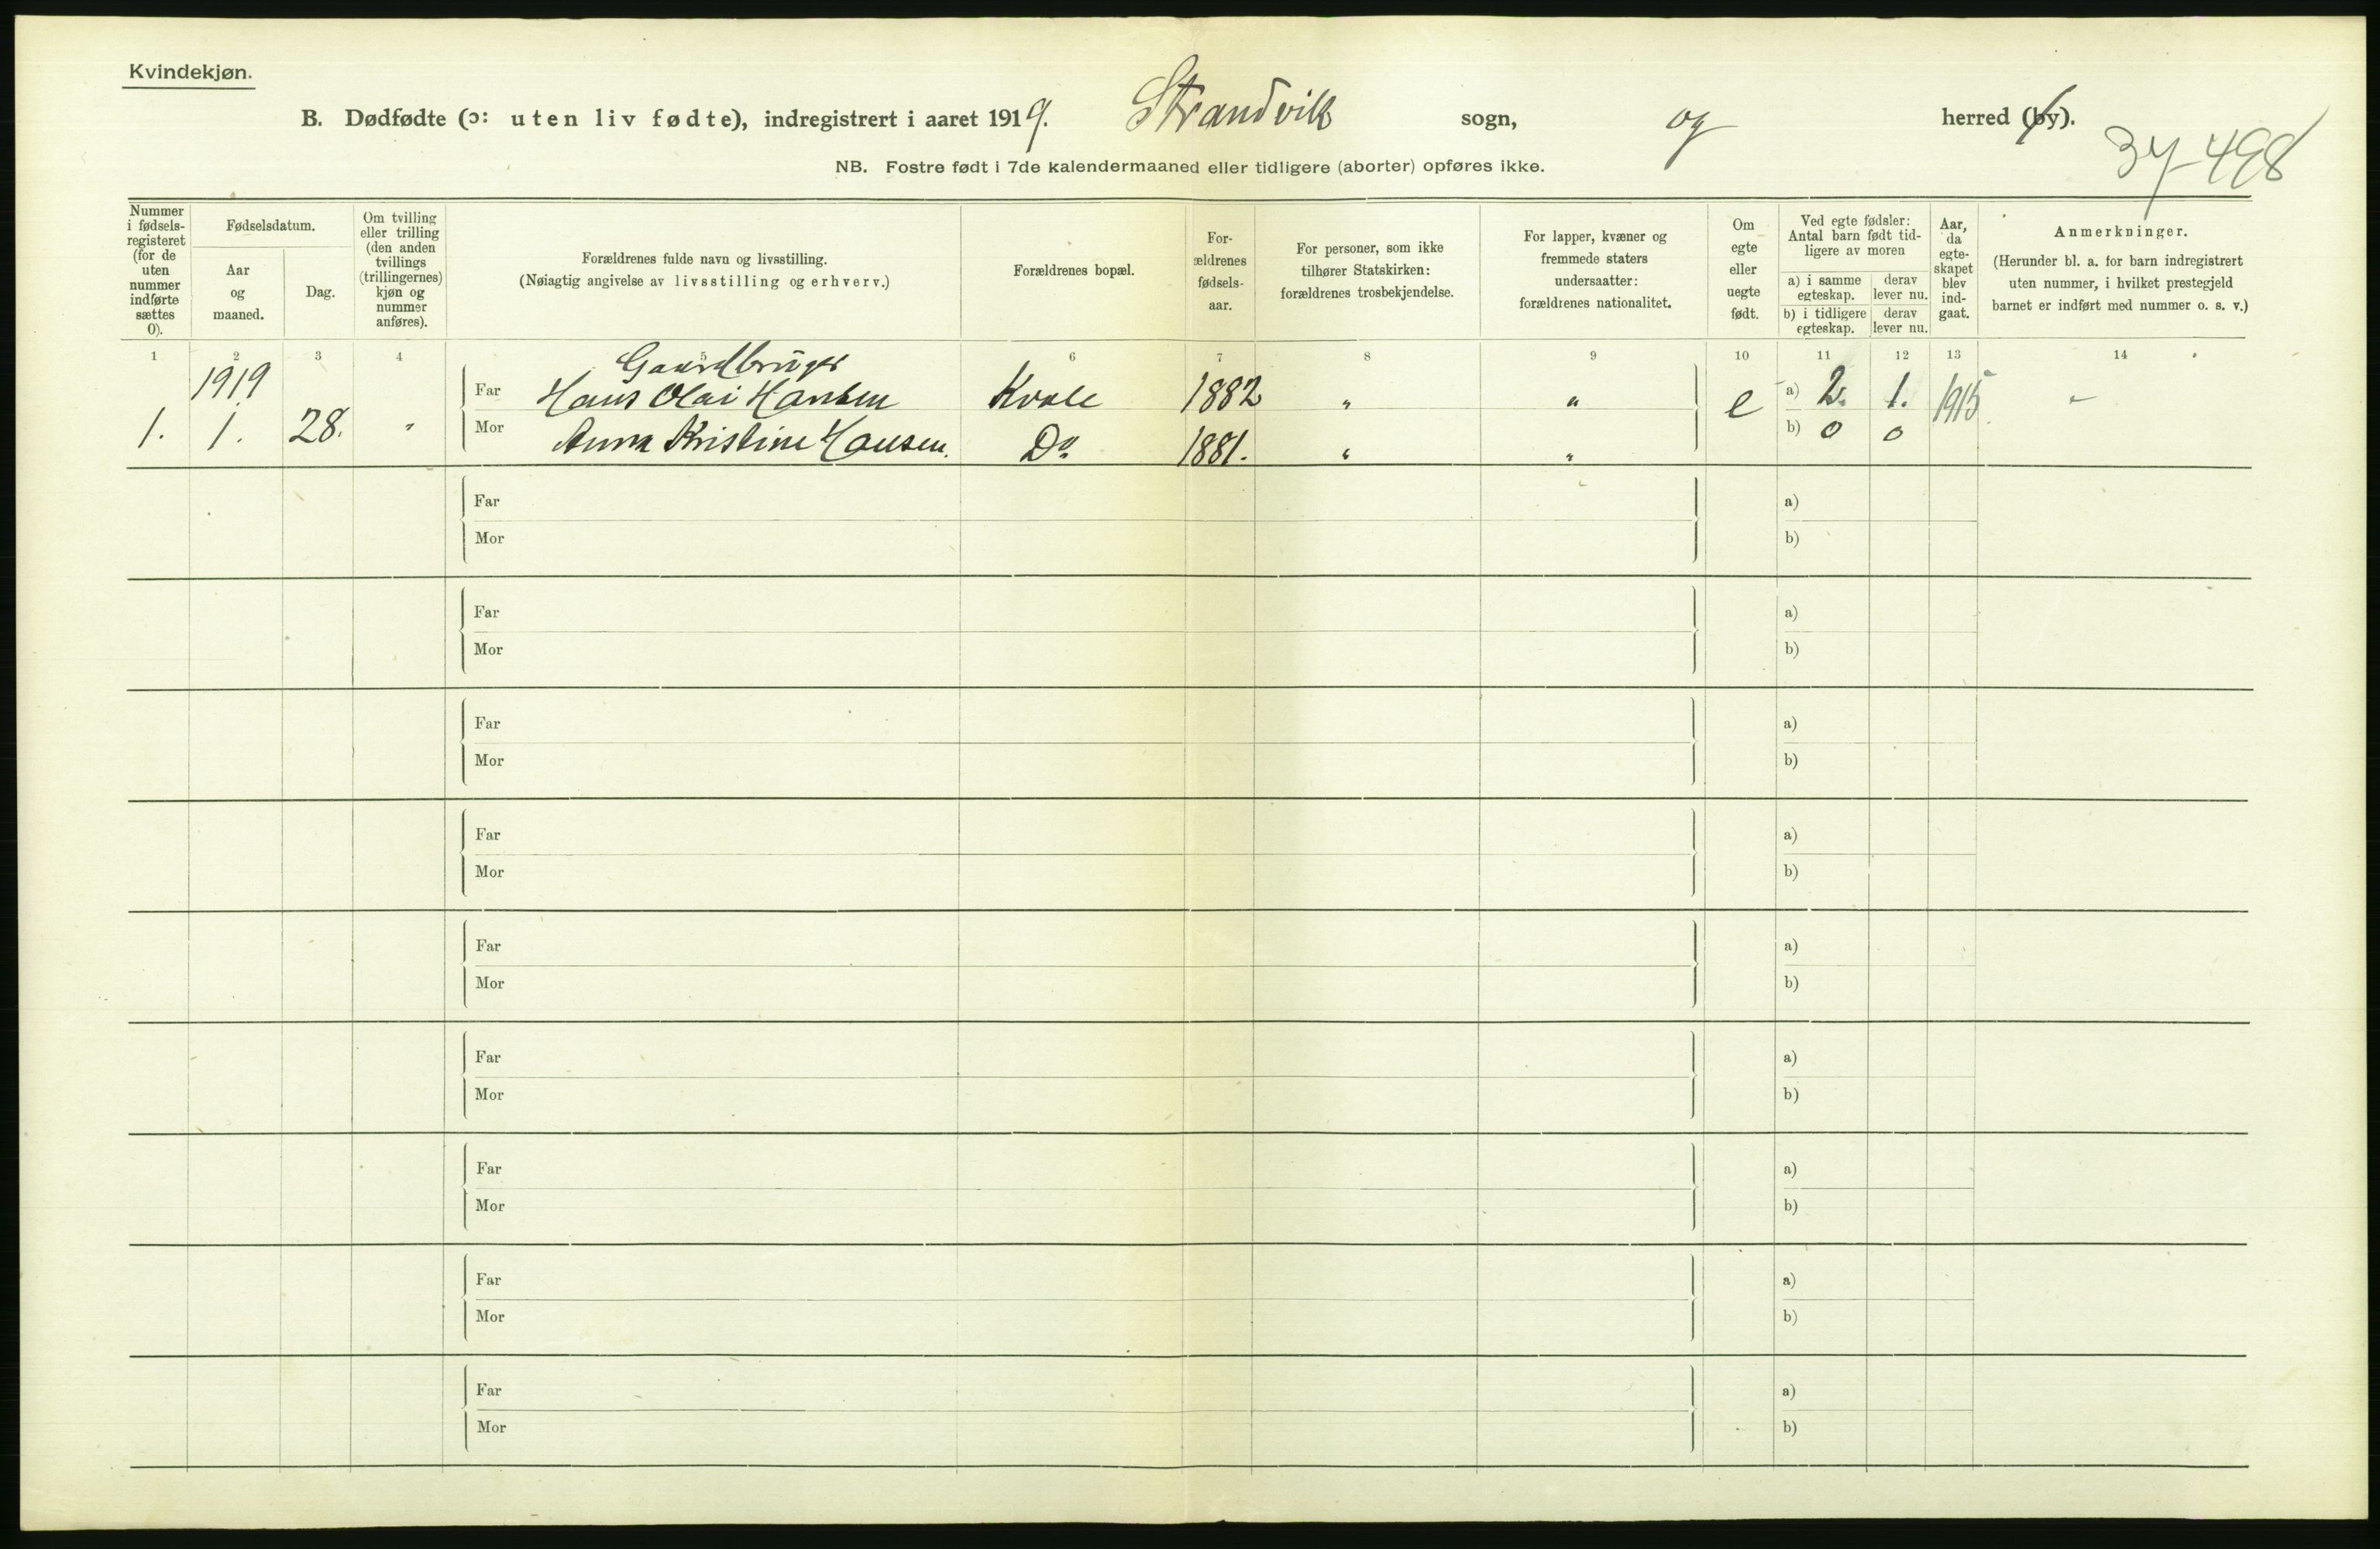 Kvindekjøn.
B. Dødfødte (ɔ: uten liv fødte), indregistrert i aaret 1919. Strandvik sogn, og herred (by).
37-498
NB. Fostre født i 7de kalendermaaned eller tidligere (aborter) opføres ikke.
Nummer i fødsels-registeret (for de uten nummer indførte sættes 0).
Fødselsdatum.
Aar og maaned.
Dag.
Om tvilling eller trilling (den anden tvillings (trillingernes) kjøn og nummer anføres).
Forældrenes fulde navn og livsstilling.
(Nøiagtig angivelse av livsstilling og erhverv.)
Forældrenes bopæl.
For-ældrenes fødsels-aar.
For personer, som ikke tilhører Statskirken: forældrenes trosbekjendelse.
For lapper, kvæner og fremmede staters undersaatter: forældrenes nationalitet.
Om egte eller uegte født.
Ved egte fødsler: Antal barn født tid-ligere av moren
a) i samme egteskap. derav lever nu.
b) i tidligere egteskap. derav lever nu.
Aar, da egte-skapet blev ind-gaat.
Anmerkninger.
(Herunder bl. a. for barn indregistrert uten nummer, i hvilket prestegjeld barnet er indført med nummer o. s. v.)
1 2 3 4 5 6 7 8 9 10 11 12 13 14
1919 Gaardbruger
Far Hans Olai Hansen Kvale 1882 " " e a) 2. 1. 1915 -
1. 1. 28. " Mor Anna Kristine Hansen. Do 1881. " " b) 0 0
Far a)
Mor b)
Far a)
Mor b)
Far a)
Mor b)
Far a)
Mor b)
Far a)
Mor b)
Far a)
Mor b)
Far a)
Mor b)
Far a)
Mor b)
Far a)
Mor b)